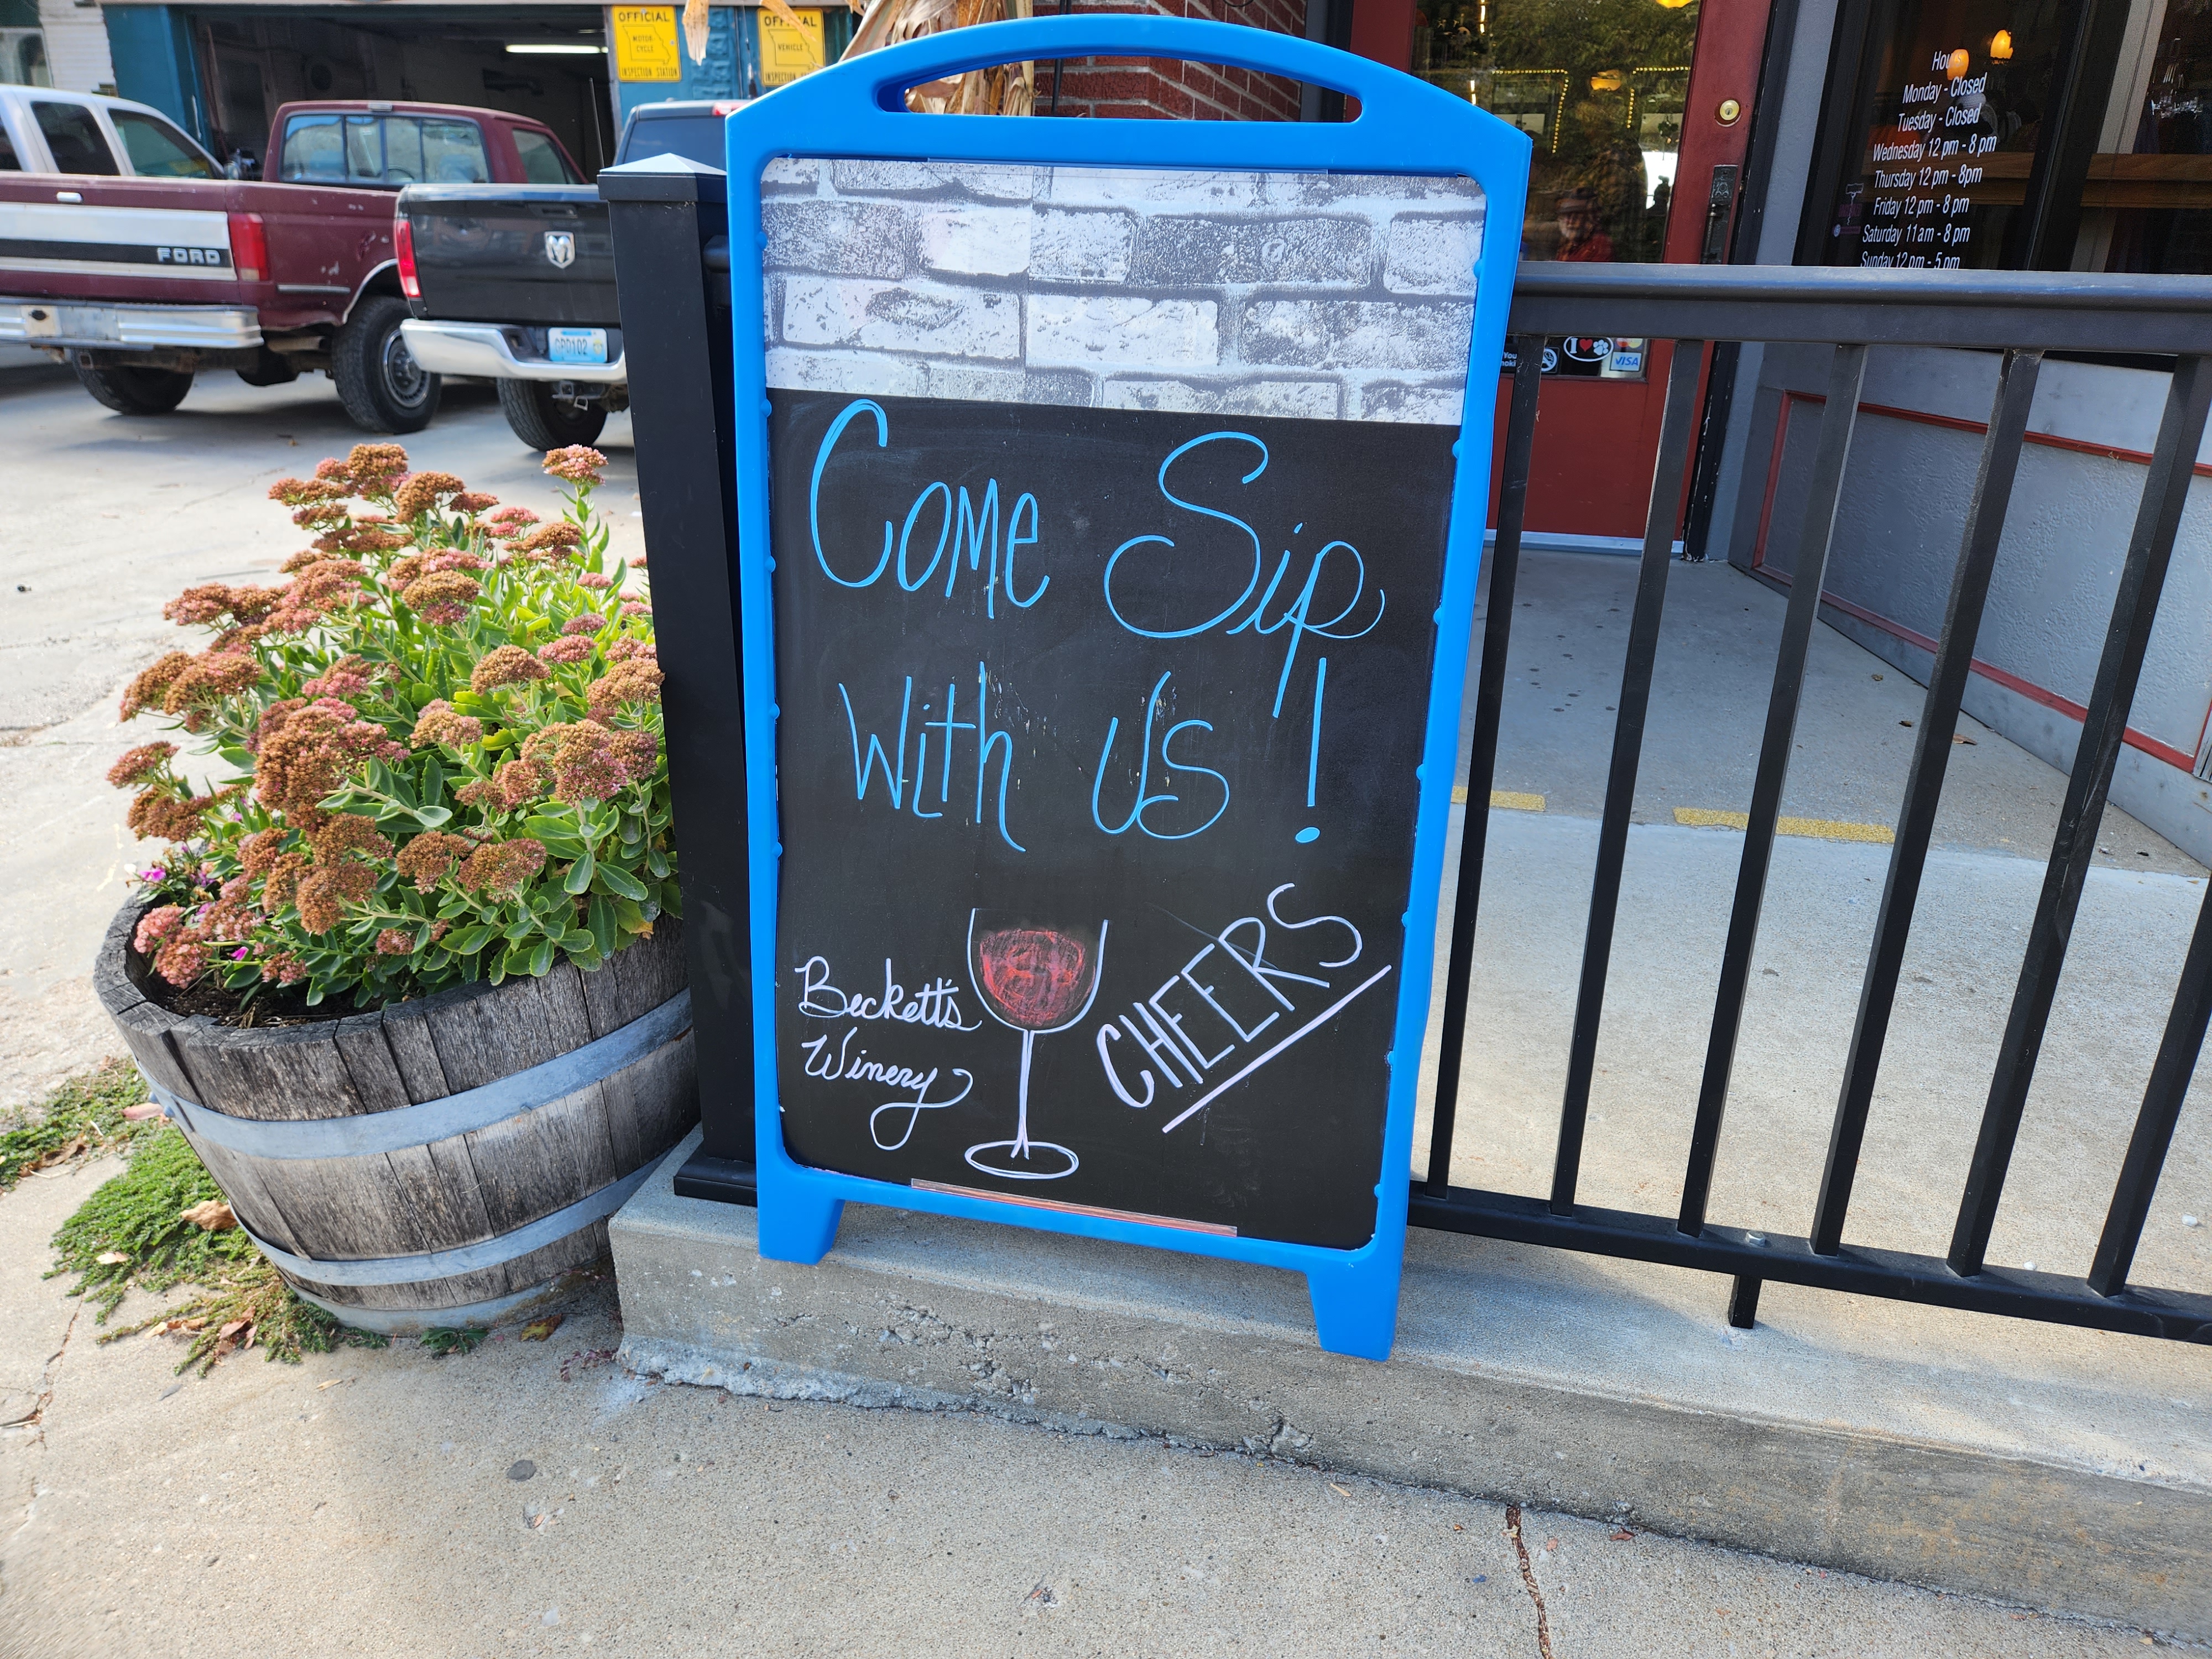 OFFICIAL
MOTOR-
CYCLE
INSPECTION STATION
OFFICIAL
VEHICLE
INSPECTION STATION
FORD
Monday - Closed
Tuesday - Closed
Wednesday 12 pm - 8 pm
Thursday 12 pm - 8pm
Friday 12 pm - 8 pm
Saturday 11 am - 8 pm
Sunday 12 pm - 5 pm
VISA
Come Sip
With us!
Beckett's
Winery
CHEERS